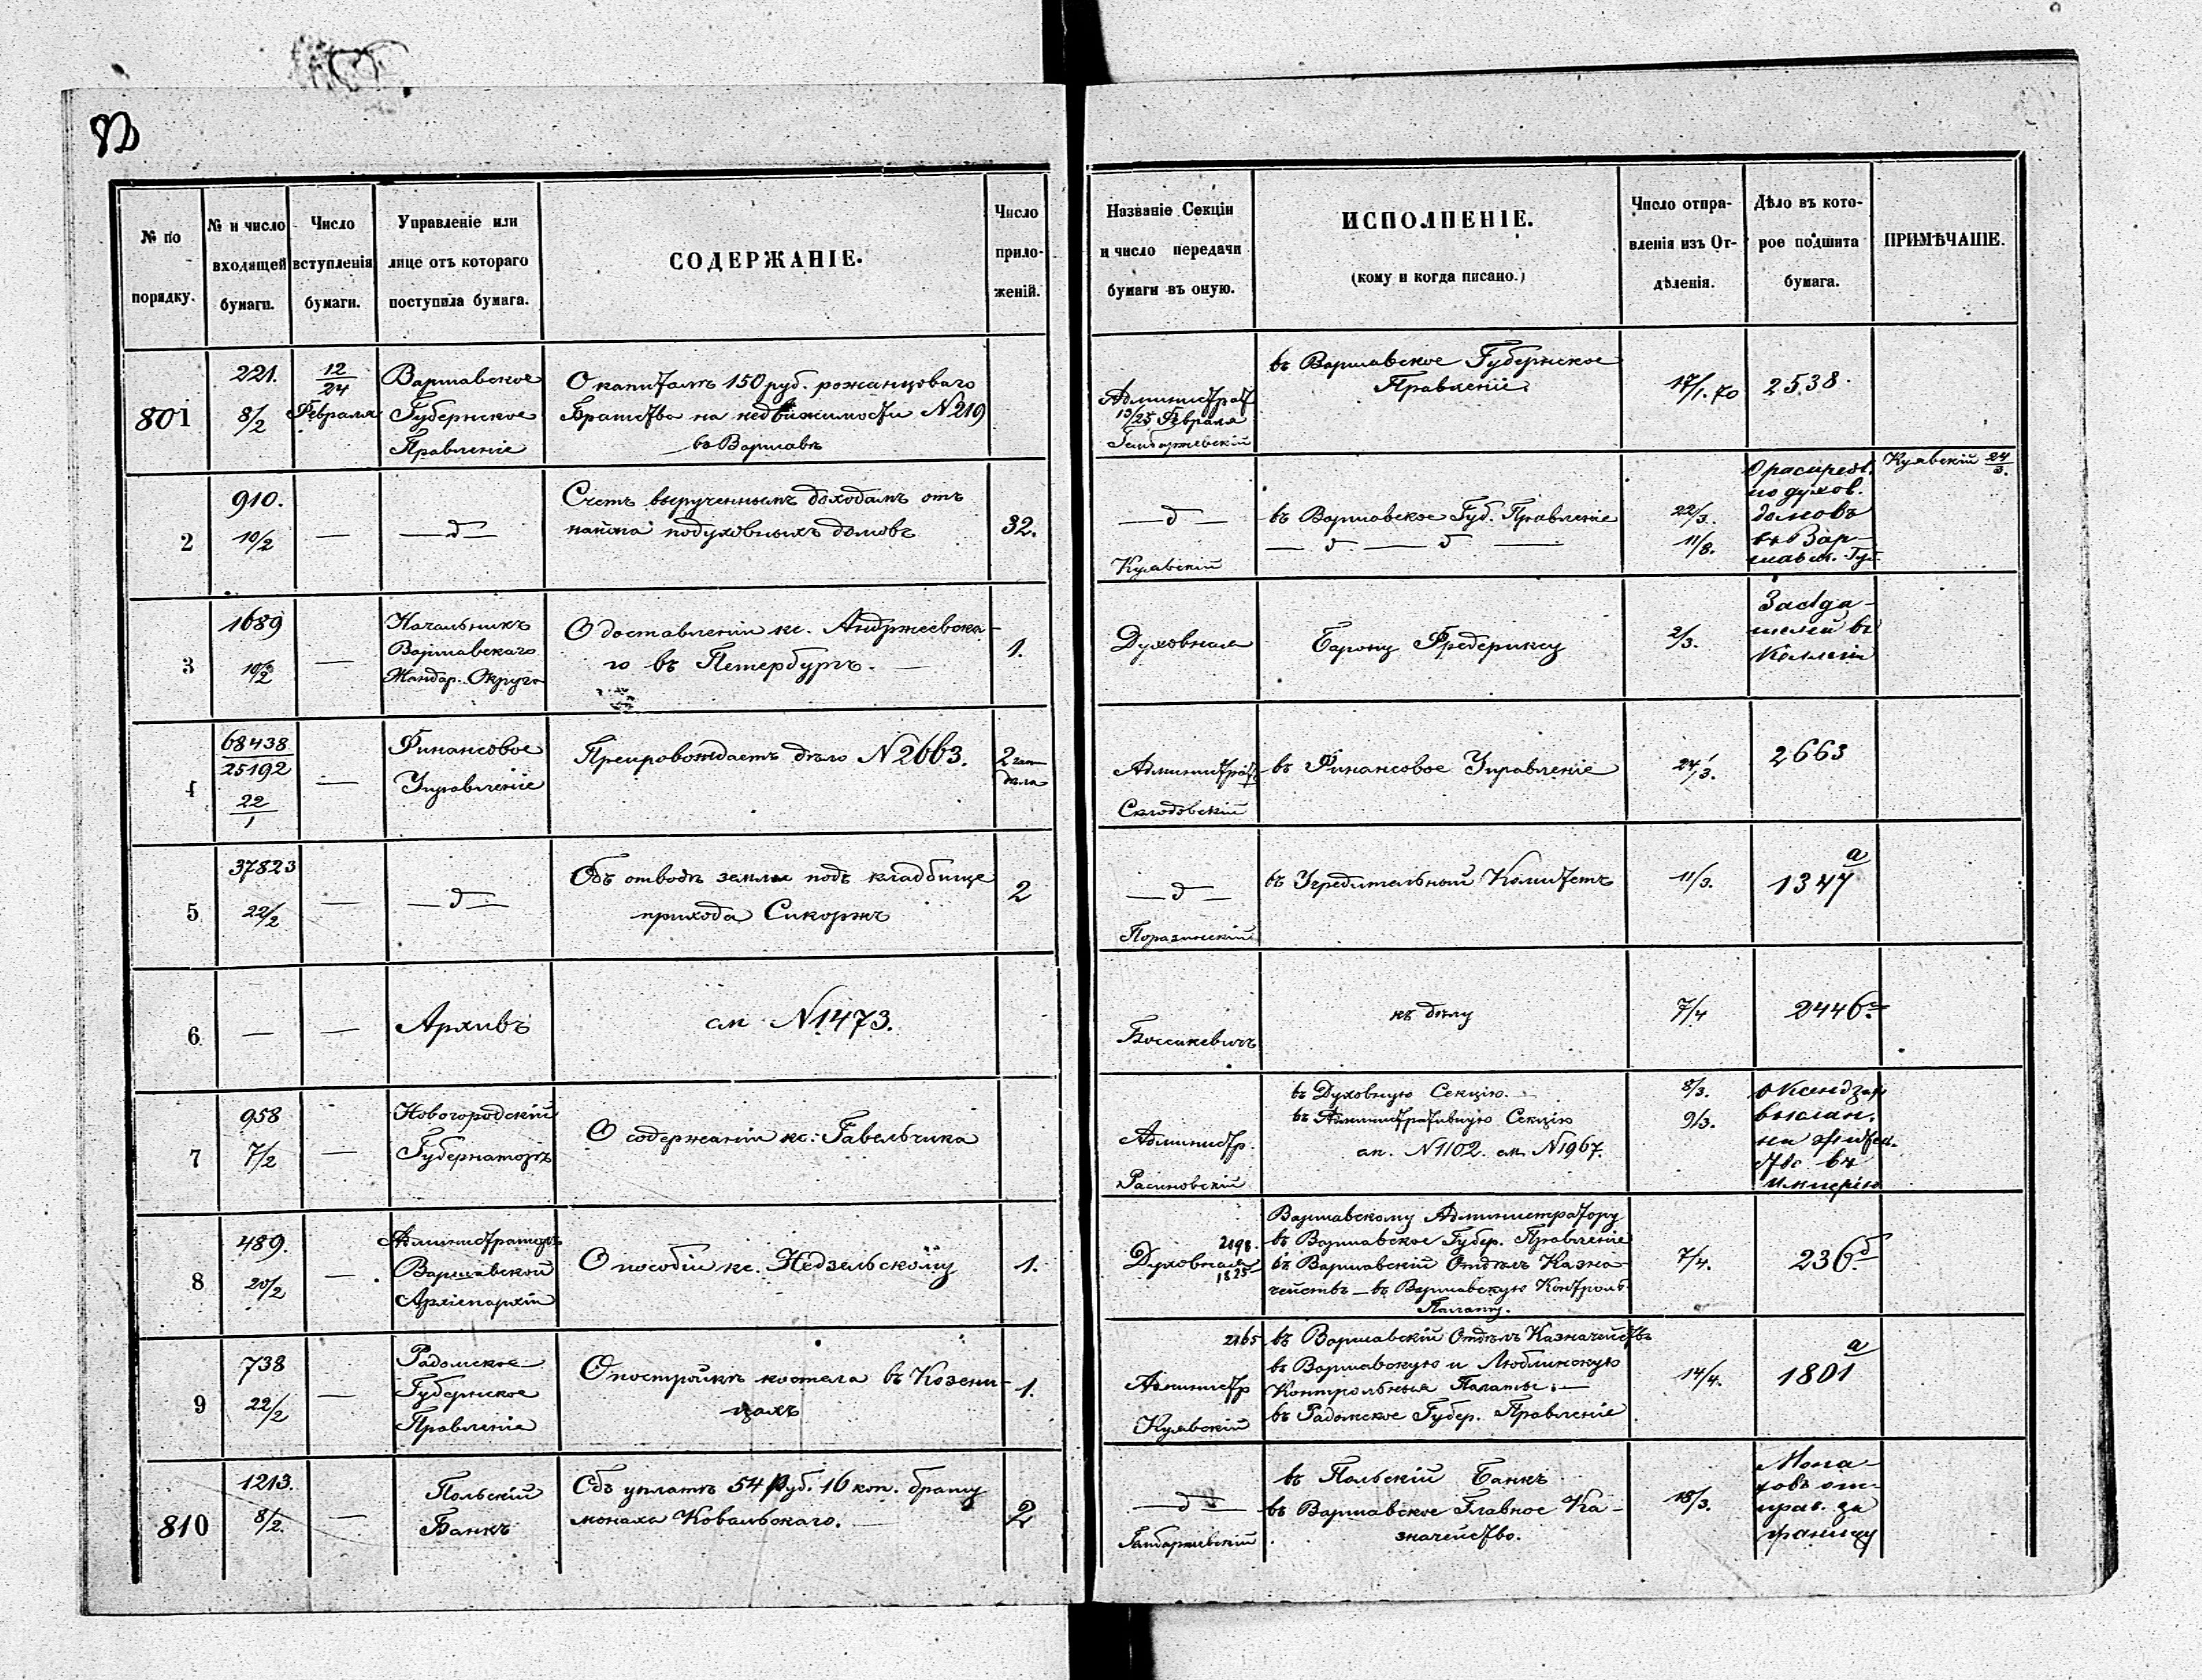 № по порядку.
№ и число входящей бумаги.
Число вступленія бумаги.
Управленіе или лице отъ котораго поступила бумага.
СОДЕРЖАНІЕ.
Число приложеній.
Названіе Секціи и число передачи бумаги въ оную.
ИСПОЛНЕНІЕ.
(кому и когда писано.)
Число отправленія изъ Отдѣленія.
Дѣло въ которое подшита бумага.
ПРИМѢЧАНІЕ.
801
221.
8/2
12/24
Февраля
Варшавское
Губернское
Правленіе
О капиталѣ 150 руб. рожанцоваго
Братства на недвижимости N 219
въ Варшавѣ
Администрат
13/25 Февраля
въ Варшавское Губернское
Правленіе
17/1. 70
2538.
2
910.
10/2
—
— д —
Счетъ вырученнымъ доходамъ отъ
найма подуховныхъ домовъ
32.
— д —
Кулавскій
въ Варшавское Губ. Правленіе
— д — д —
22/3.
11/8.
О распредѣл.
по духов.
домовъ
въ Вар-
шавск. Губ.
Кулавскій 24/3.
3
1689
10/2
—
Начальникъ
Варшавскаго
Жандар. Округа
О доставленіи кс. Анджеевска-
го въ Петербургъ. —
1.
Духовная
Барону Фредериксу
2/3.
Засѣда-
телей въ
Коллегіи
4
68438
25192
22/1
—
Финансовое
Управленіе
Препровождаетъ дѣло N 2663.
2
дѣла
Администрат
Склодовскій
въ Финансовое Управленіе
24/3.
2663
5
37823
22/2
—
— д —
Объ отводѣ земли подъ кладбище
прихода Сикоржъ
2
— д —
Поразинскій
въ Учредительный Комитетъ
11/3.
1347 а
6
—
—
Архивъ
см N 1473.
къ дѣлу
7/4
2446
7
958
7/2
—
Новогородскій
Губернаторъ
О содержаніи кс. Гавельчика
Администр.
Расиновскій
въ Духовную Секцію.
въ Административную Секцію
см. N 1102. см. N 1967.
8/3.
9/3.
о Ксендзах
выслан.
на житель-
ство въ
Имперію
8
489.
20/2
—
Администраторъ
Варшавской
Архіепархіи
О пособіи кс. Недзельскому
1.
2198.
Духовная
1825
Варшавскому Администратору
въ Варшавское Губер. Правленіе
въ Варшавскій Отдѣлъ Казна-
чействъ — въ Варшавскую Контроль.
Палату.
7/4.
236 б
9
738
22/2
—
Радомское
Губернское
Правленіе
О постройкѣ костела въ Козени-
цахъ
1.
2165
Администр
Кулавскій
въ Варшавскій Отдѣлъ Казначействъ
въ Варшавскую и Люблинскую
Контрольныя Палаты. —
въ Радомское Губер. Правленіе
14/4.
1801 а
810
1213.
8/2.
—
Польскій
Банкъ
Объ уплатѣ 54 руб. 16 коп. брату
монаха Ковальскаго. —
2
— д —
въ Польскій Банкъ
въ Варшавское Главное Ка-
значейство.
18/3.
Мона-
ховъ от-
прав. за
границу